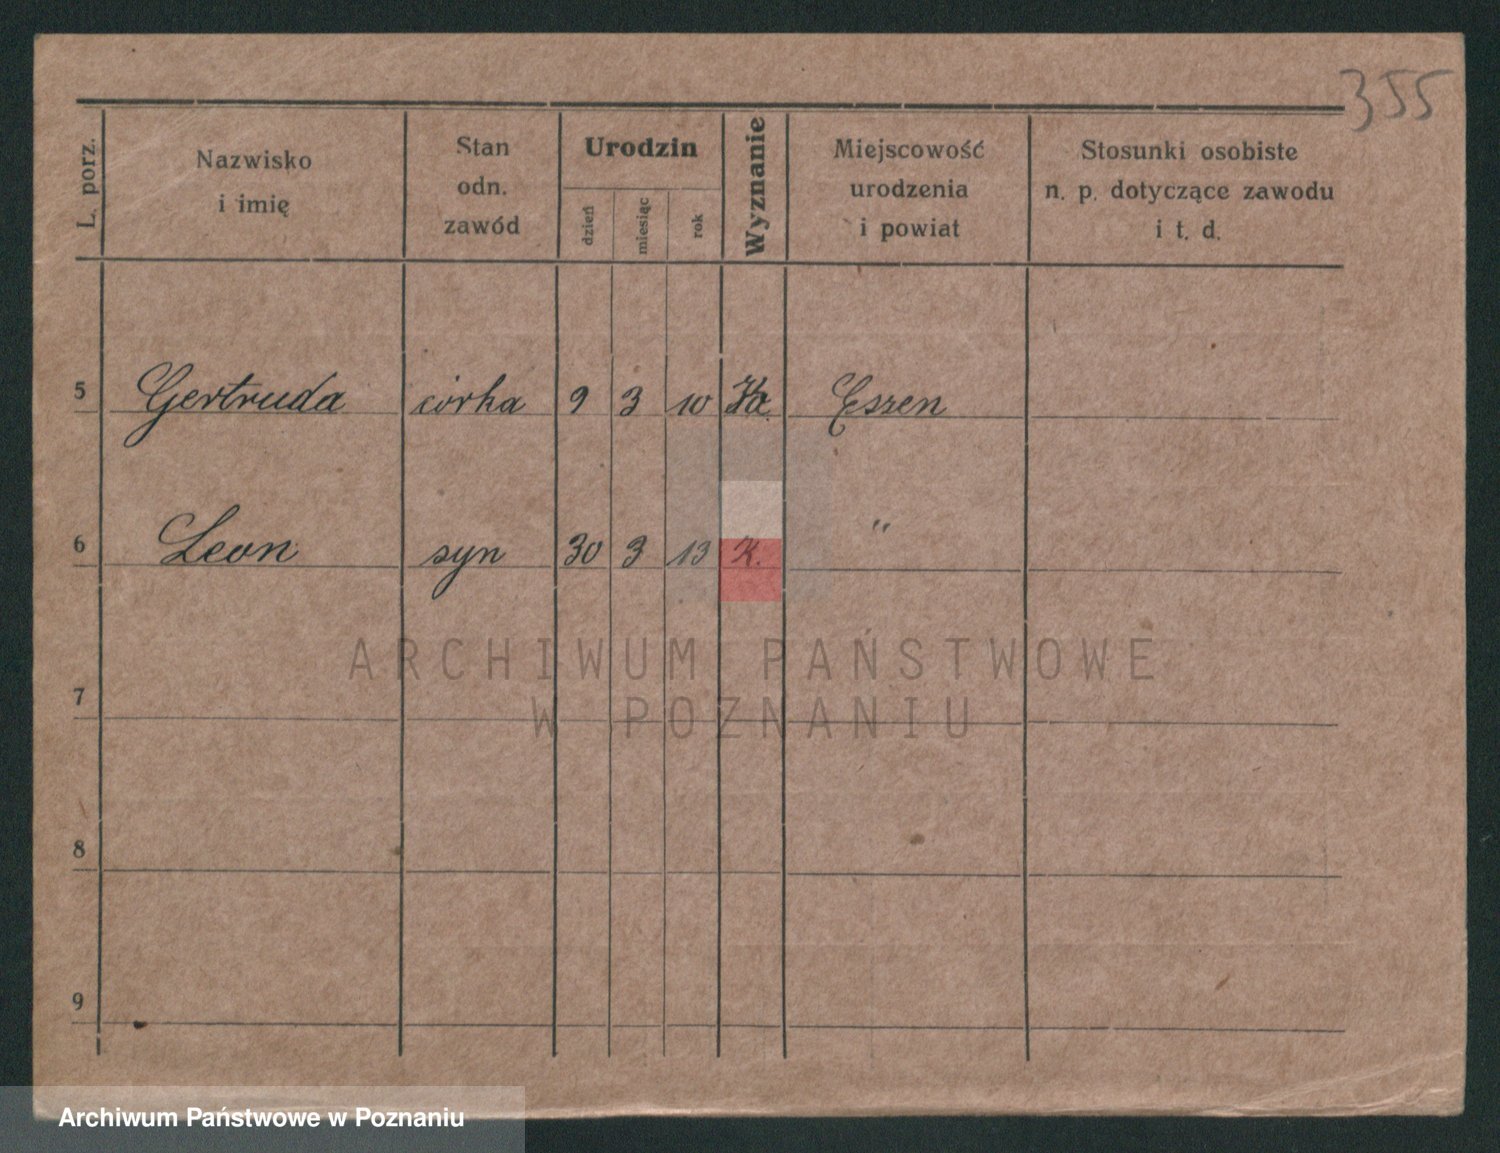 355
L. porz. Nazwisko i imię Stan odn. zawód Urodzin dzień miesiąc rok Wyznanie Miejscowość urodzenia i powiat Stosunki osobiste n. p. dotyczące zawodu i t. d.
5 Gertruda córka 9 3 10 Ka Eszen
6 Leon syn 30 3 13 K. "
ARCHIWUM PAŃSTWOWE
7
W POZNANIU
8
9
Archiwum Państwowe w Poznaniu